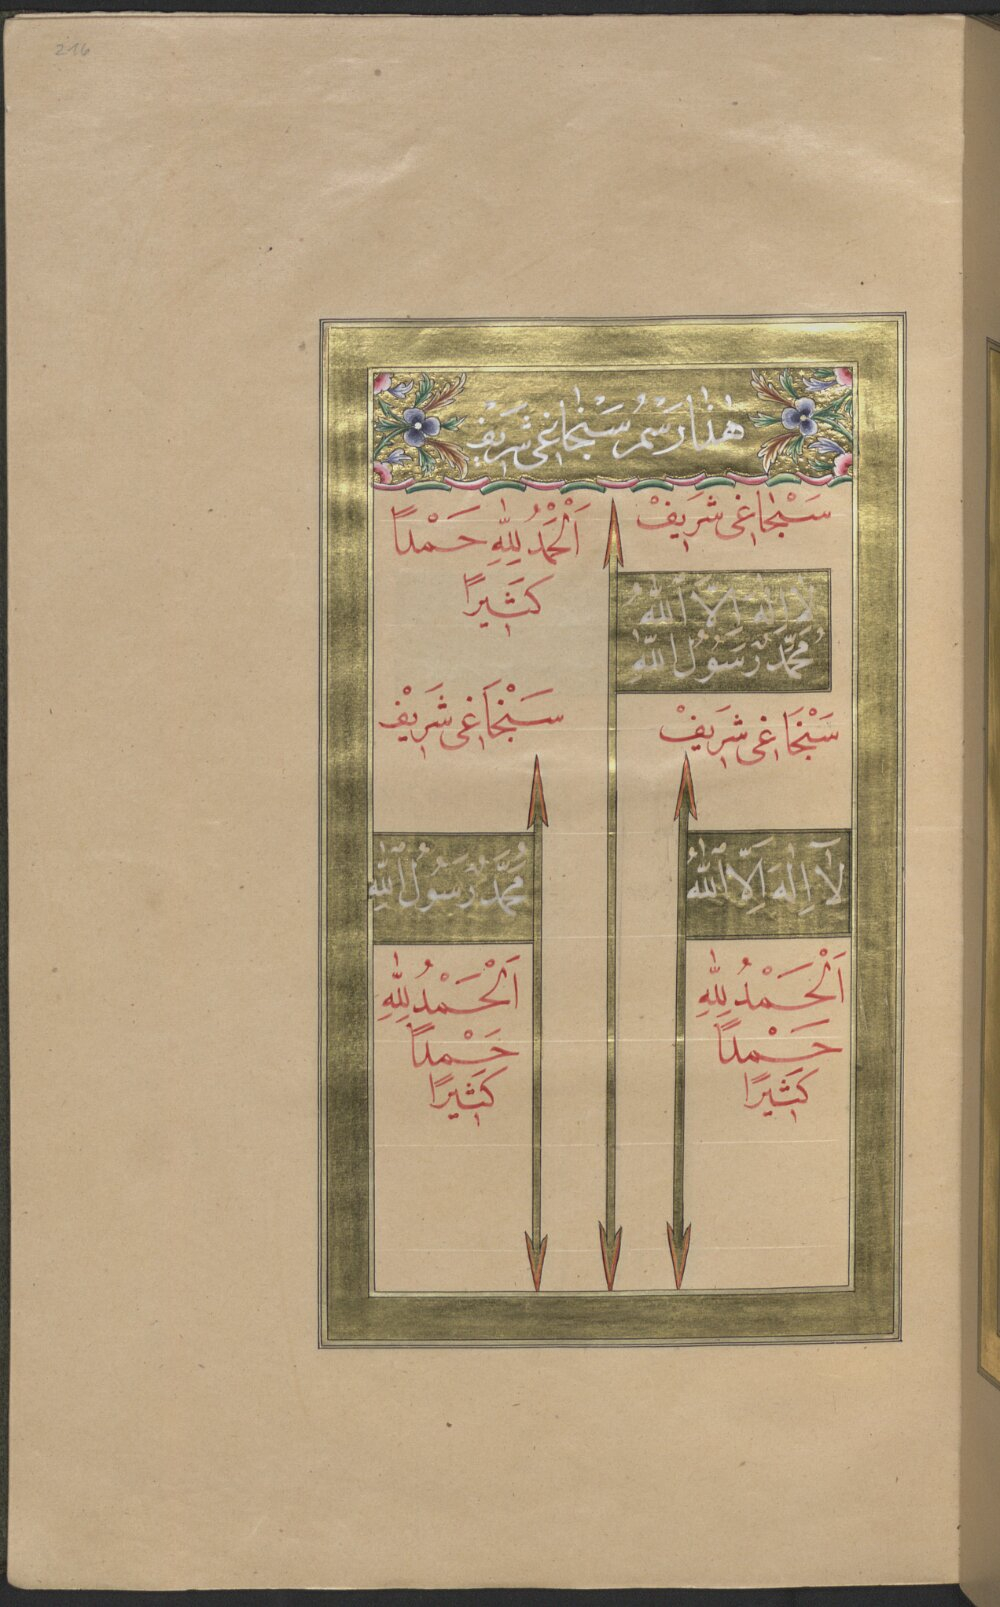 216
هٰذَا رَسْمِ سَنْجَاغِى شَرِيفْ
سَنْجَاغِى شَرِيفْ
لَا اِلٰهَ اِلَّا اللّٰهُ
مُحَمَّدٌ رَسُولُ اللّٰهِ
اَلْحَمْدُ لِلّٰهِ حَمْدًا
كَثِيرًا
سَنْجَاغِى شَرِيفْ
لَآ اِلٰهَ اِلَّا اللّٰهُ
اَلْحَمْدُ لِلّٰهِ
حَمْدًا
كَثِيرًا
سَنْجَاغِى شَرِيفْ
مُحَمَّدٌ رَسُولُ اللّٰهِ
اَلْحَمْدُ لِلّٰهِ
حَمْدًا
كَثِيرًا